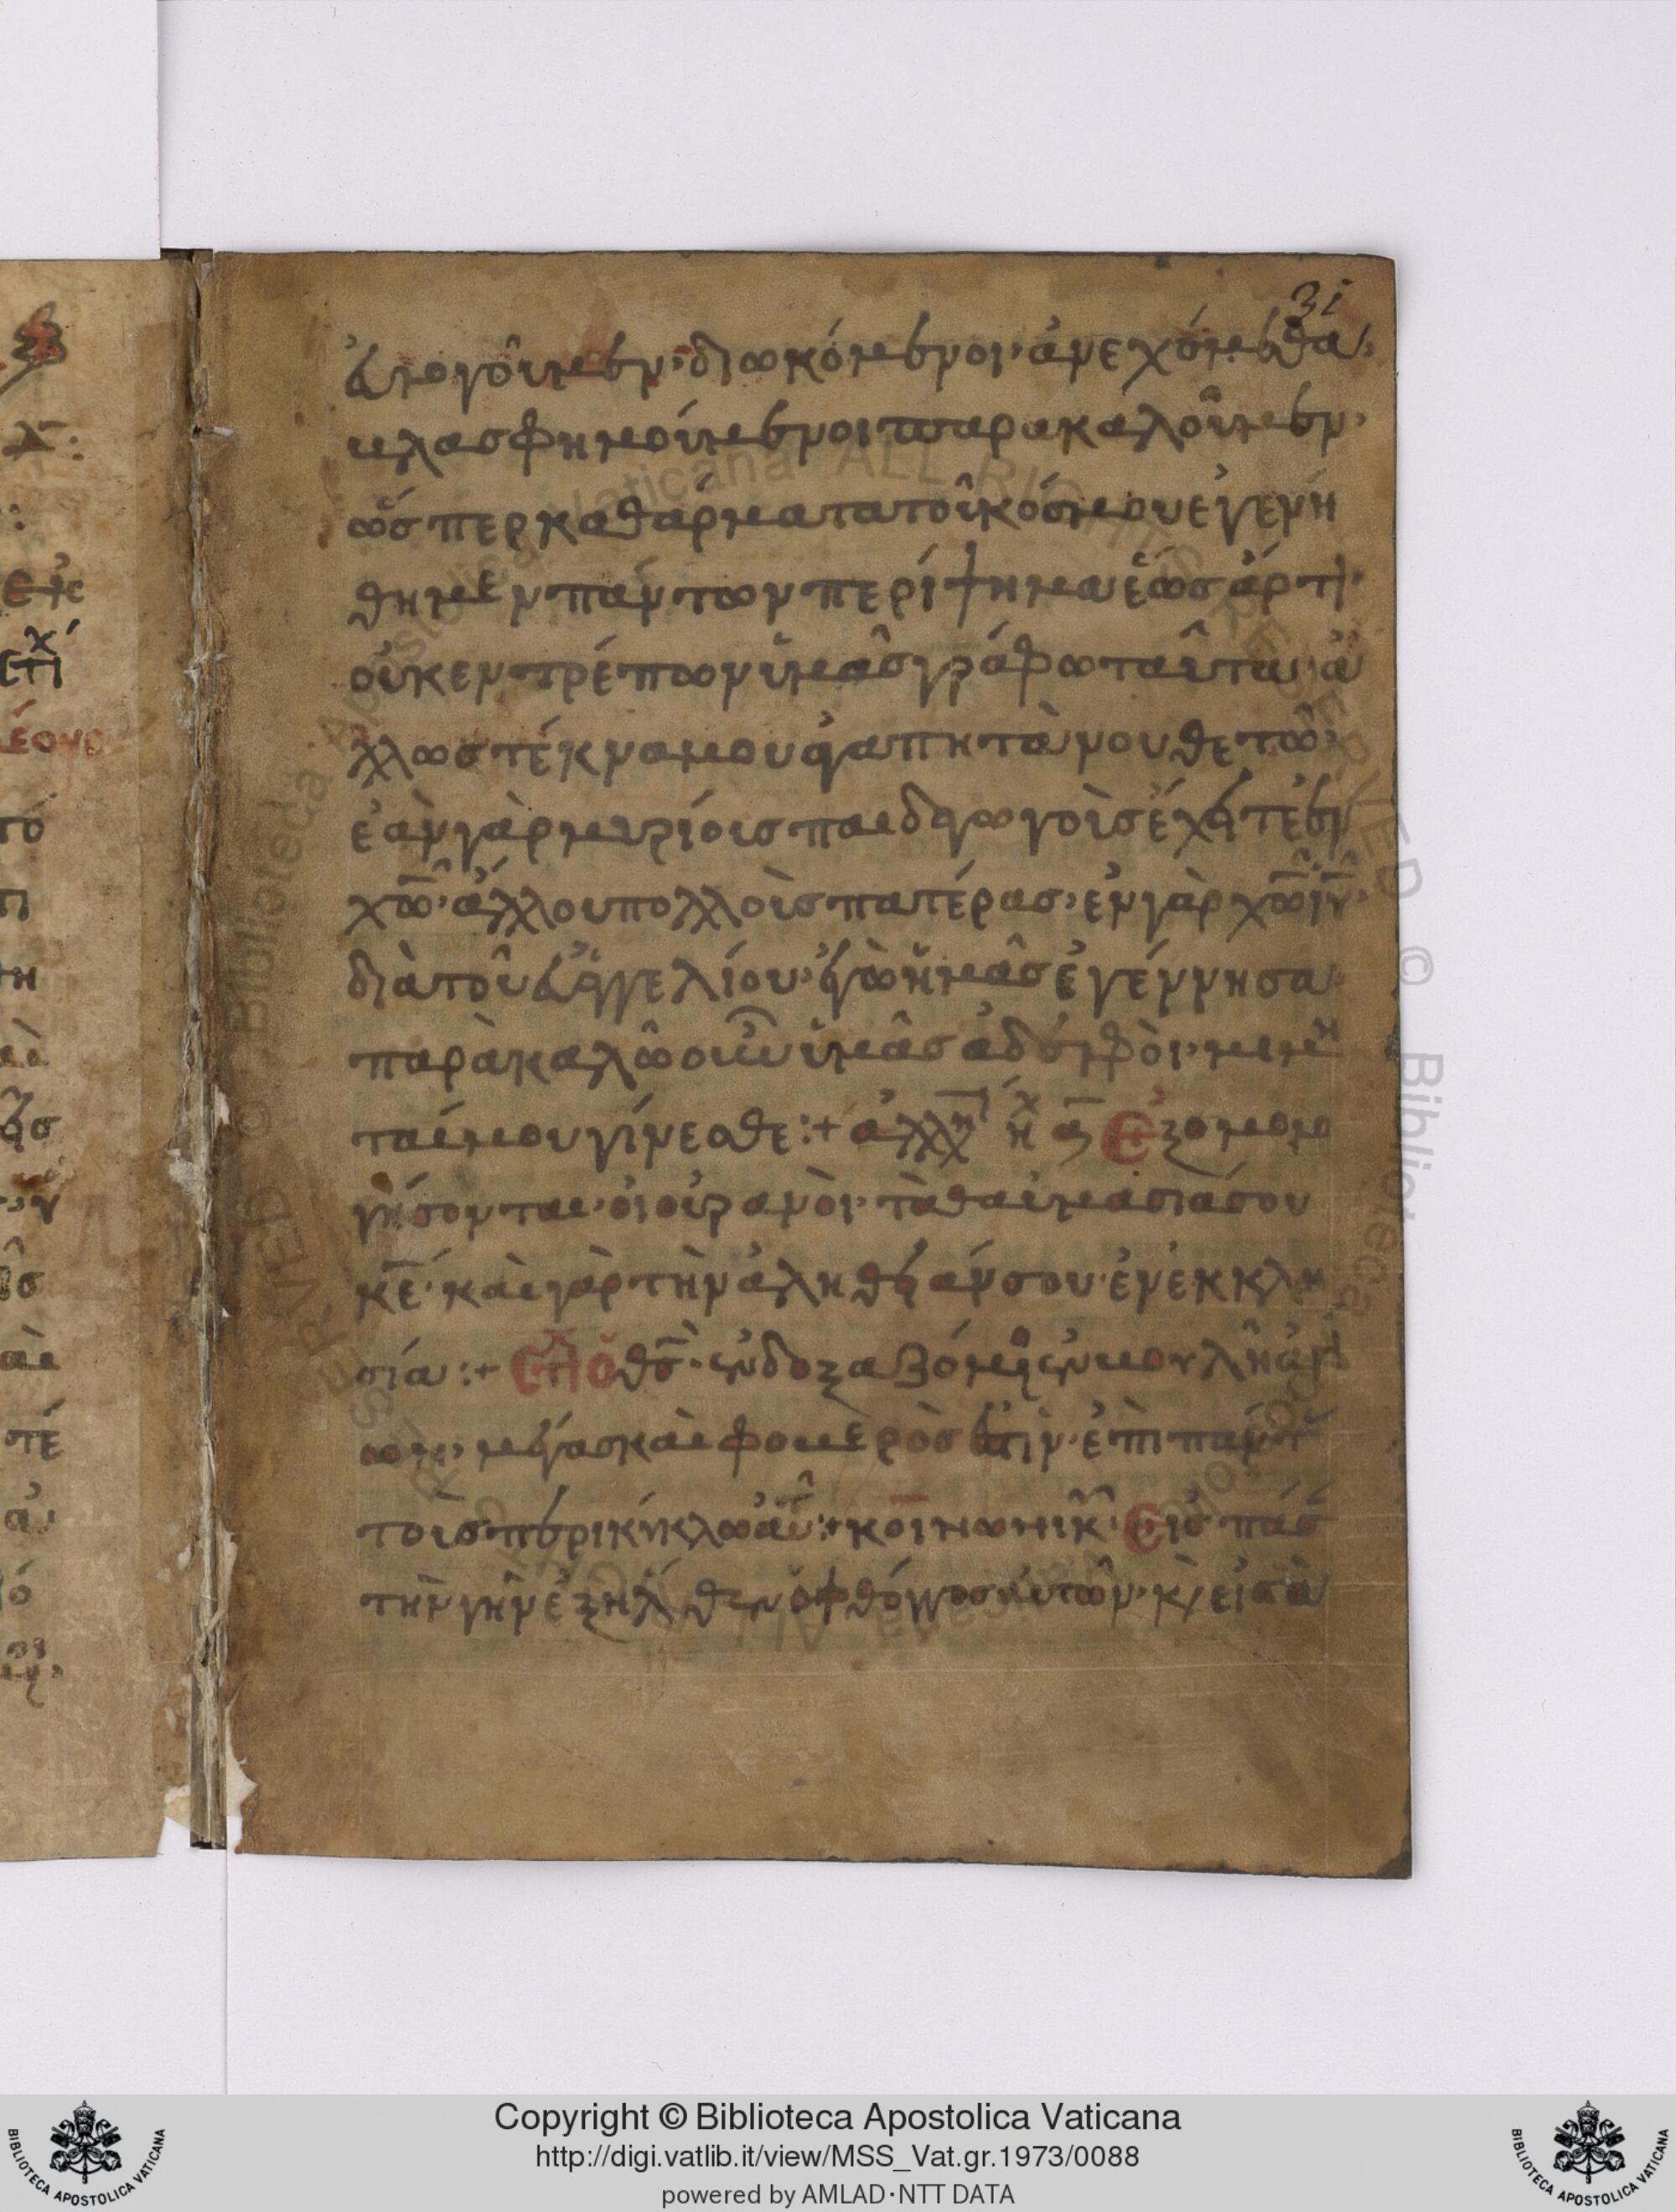 31
ἐυλογοῦμεν· διωκόμενοι· ἀνεχόμεθα·
βλασφημούμενοι παρακαλοῦμεν·
ὥσπερ καθάρματα τοῦ κόσμου ἐγενή
θημεν πάντων περίψημα ἕως ἄρτι·
οὐκ εντρέπων ὑμᾶς γράφω ταῦτα· ἀ
λλ ως τέκνα μου ἀγαπητὰ νουθετῶ·
ἐὰν γὰρ μυρίοις παιδαγωγοὶς ἔχητε ἐν
χω· ἀλλ ου πολλοὶς πατέρας· ἐν γὰρ χω ιυ·
διὰ τοῦ ἐυαγγελίου· ἐγὼ ἡμᾶς ἐγέννησα·
παρὰκαλῶ οὖν ὑμᾶς ἀδελφὸι· μιμη
ταί μου γίνεσθε :+ ἀλλη ἠχ α Εξομολο
γήσονται· ὁι οὐρανὸι· τὰ θαυμάσιά σου
κε· καὶ γὰρ τὴν ἀλήθειάν σου· ἐν εκκλη
σία :+ Στι ὁ θς· ἐνδοξαζόμε ἐν βουλῆ ἁγί
ων· μέγας καὶ φοβερὸς ἐστὶν· ἐπὶ παντ
τοὶς περικύκλω ἀυ :+ κοινωνικ· Εἰς πάσ
τὴν γὴν ἐξῆλθεν ὁ φθόγγος ἀυτῶν· κ εἰς τὰ
Copyright © Biblioteca Apostolica Vaticana
http://digi.vatlib.it/view/MSS_Vat.gr.1973/0088
powered by AMLAD·NTT DATA
BIBLIOTECA APOSTOLICA VATICANA
BIBLIOTECA APOSTOLICA VATICANA